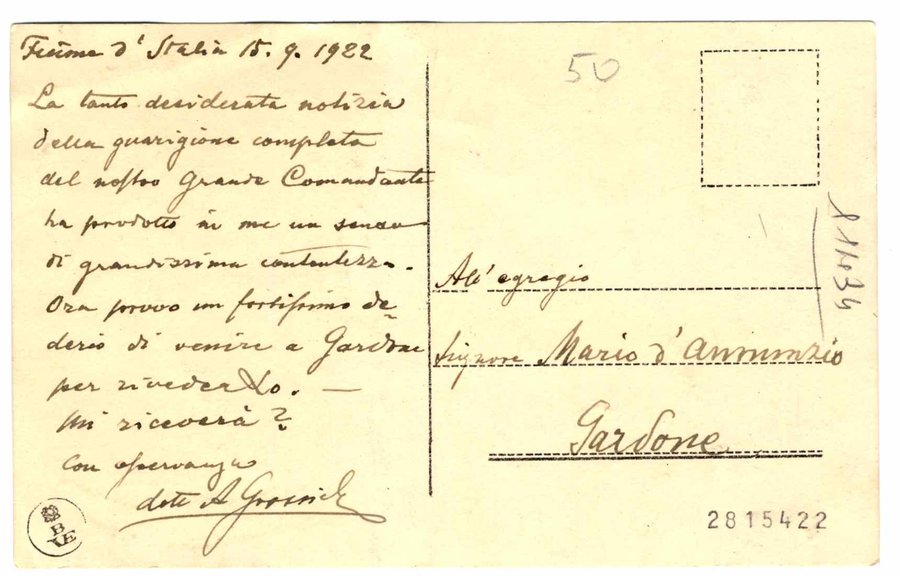 Fiume d'Italia 15. 9. 1922
La tanto desiderata notizia
della guarigione completa
del nostro Grande Comandante
ha prodotto in me un senso
di grandissima contentezza.
Ora provo un fortissimo de-
derio di venire a Gardone
per rivederLo. —
Mi riceverà?
Con osservanza
dott A Grossich
50
All' egregio
Signore Mario d'Annunzio
Gardone
11434
2815422